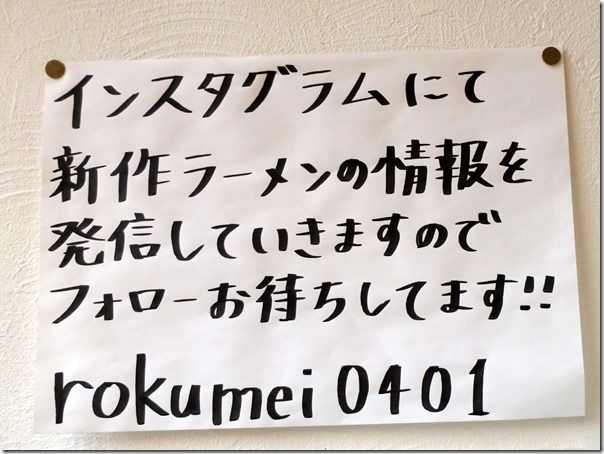 インスタグラムにて
新作ラーメンの情報を
発信していきますので
フォローお待ちしてます!!
rokumei 0401